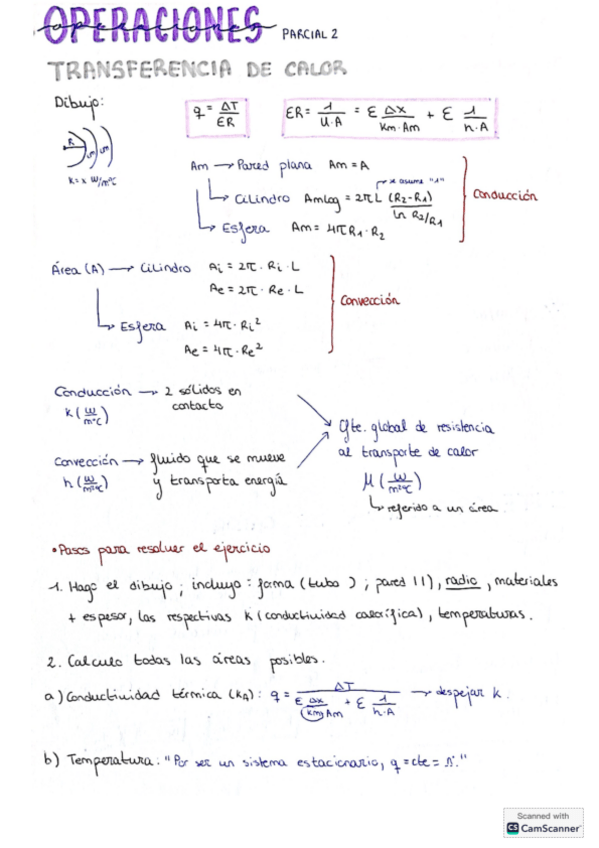 OPERACIONES PARCIAL 2
operaciones
TRANSFERENCIA DE CALOR
Dibujo:
q = ΔT / ER
ER = 1 / U·A = Ɛ Δx / Km·Am + Ɛ 1 / h·A
R
k = x W/m°C
Am → Pared plana Am = A
se asume "1"
→ Cilindro AmLog = 2πL (R2-R1) / ln R2/R1
→ Esfera Am = 4πR1·R2
Conducción
Área (A) → Cilindro Ai = 2π·Ri·L
Ae = 2π·Re·L
→ Esfera Ai = 4π·Ri²
Ae = 4π·Re²
Convección
Conducción → 2 sólidos en
contacto
k (W/m°C)
Convección → fluido que se mueve
y transporta energía
h (W/m²°C)
Cfte. global de resistencia
al transporte de calor
μ (W/m²°C)
↳ referido a un área
• Pasos para resolver el ejercicio
1. Hago el dibujo, incluyo: forma (tubo ); pared 11), radio, materiales
+ espesor, las respectivas K (conductividad calorífica), temperaturas.
2. Calculo todas las áreas posibles.
a) Conductividad térmica (KA): q = ΔT / Ɛ Δx / Km Am + Ɛ 1 / h·A → despejar k.
b) Temperatura: "Por ser un sistema estacionario, q = cte =
Scanned with
CS CamScanner